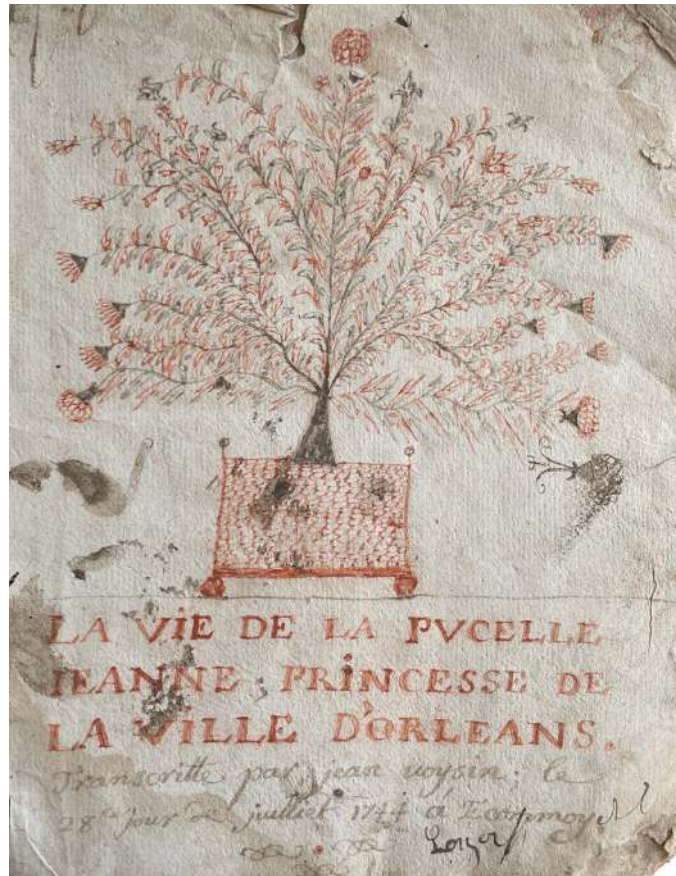 LA ViE DE LA PVCELLE
JEANNE; PRiNCESSE DE
LA VILLE D'ORLEANS.
Transcritte par jean voysin; le
28e jour de juilliet 1744 a